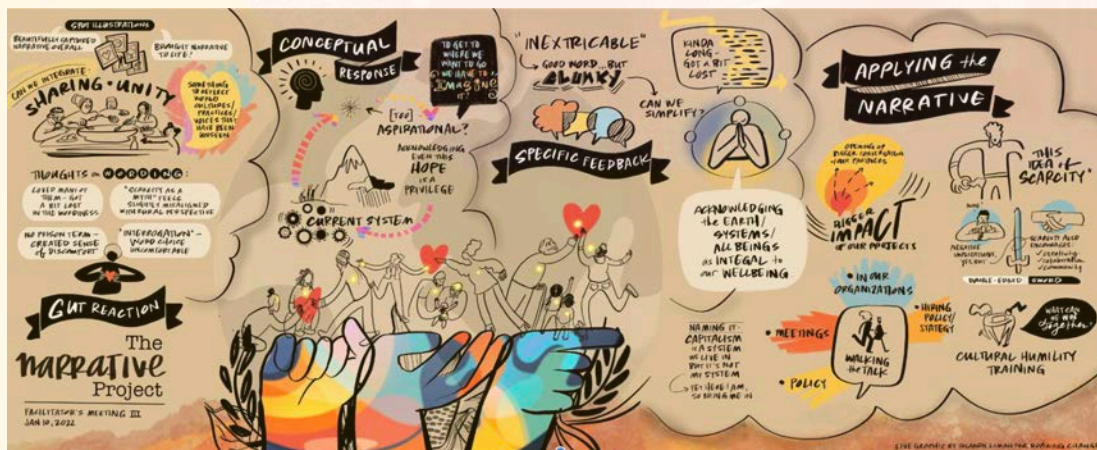 SPOT ILLUSTRATIONS
BEAUTIFULLY CAPTURED
NARRATIVE OVERALL
BROUGHT NARRATIVE
TO LIFE!
CAN WE INTEGRATE:
SHARING + UNITY
SOMETHING
TO REFLECT
WORLD
CULTURES/
PRACTICES/
VOICES THAT
HAVE BEEN
THOUGHTS on WORDING:
LOVED MANY OF
THEM - GOT
A BIT LOST
IN THE WORDINESS
"SCARCITY AS A
MYTH" FEELS
SLIGHTLY MISALIGNED
WITH RURAL PERSPECTIVE
NO PRISON TERM -
CREATED SENSE
OF DISCOMFORT
"INTERROGATION" -
WORD CHOICE
UNCOMFORTABLE
GUT REACTION
The
NARRATIVE
Project
FACILITATOR'S MEETING III
JAN 10, 2022
CONCEPTUAL
RESPONSE
TO GET TO
WHERE WE
WANT TO GO
WE HAVE TO
IMAGINE
IT!
[TOO]
ASPIRATIONAL?
ACKNOWLEDGING
EVEN THIS
HOPE
IS A
PRIVILEGE
CURRENT SYSTEM
"INEXTRICABLE"
GOOD WORD... BUT
CLUNKY
CAN WE
SIMPLIFY?
SPECIFIC FEEDBACK
KINDA
LONG -
GOT A BIT
LOST
ACKNOWLEDGING
the EARTH/
SYSTEMS/
ALL BEINGS
as INTEGAL to
our WELLBEING
NAMING IT -
CAPITALISM
IS A SYSTEM
WE LIVE IN
BUT IT'S NOT
MY SYSTEM
YET HERE I AM,
SO BRING ME IN
APPLYING the
NARRATIVE
OPENING UP
BIGGER CONVERSATION
BIGGER
IMPACT
of OUR PROJECTS
• IN OUR
ORGANIZATIONS
• MEETINGS
• HIRING
POLICY/
STATEGY
• POLICY
WALKING
the TALK
"THIS
IDEA of
SCARCITY"
NEGATIVE
IMPLICATIONS,
SCARCITY ALSO
ENCOURAGES:
creativity
collaboration
community
DOUBLE-EDGED SWORD
WHAT CAN
WE
together?
CULTURAL HUMILITY
TRAINING
LIVE GRAPHIC BY